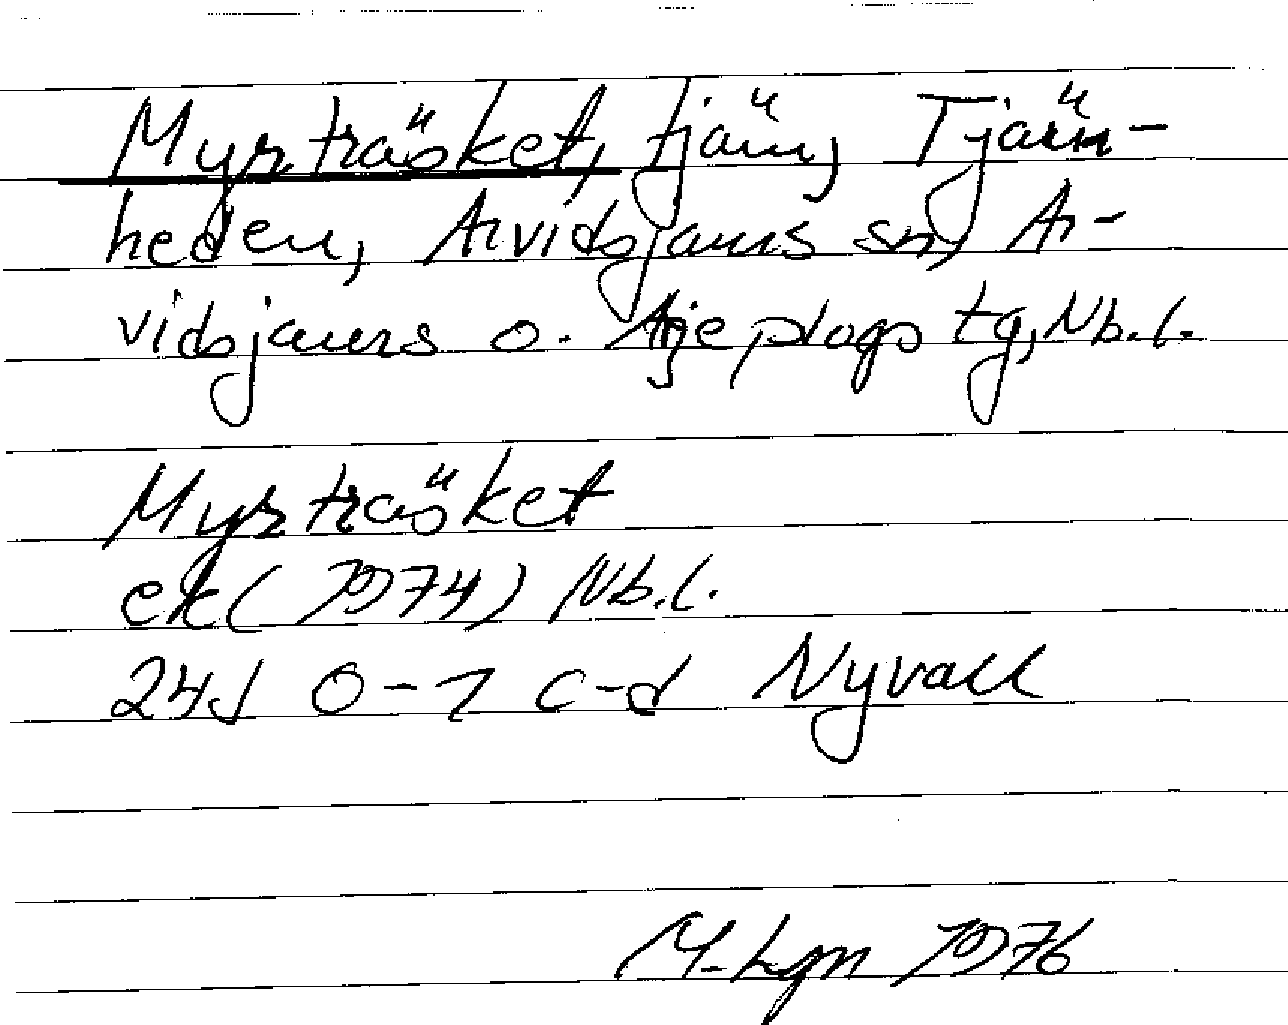 Myrträsket, tjärn, Tjärn-
heden, Arvidsjaurs sn, Ar-
vidsjaurs o. Arjeplogs tg, Nb.l.
Myrträsket
ek (1974) Nb.l.
24J 0-1 c-d Nyvall
M-Lgn 1976